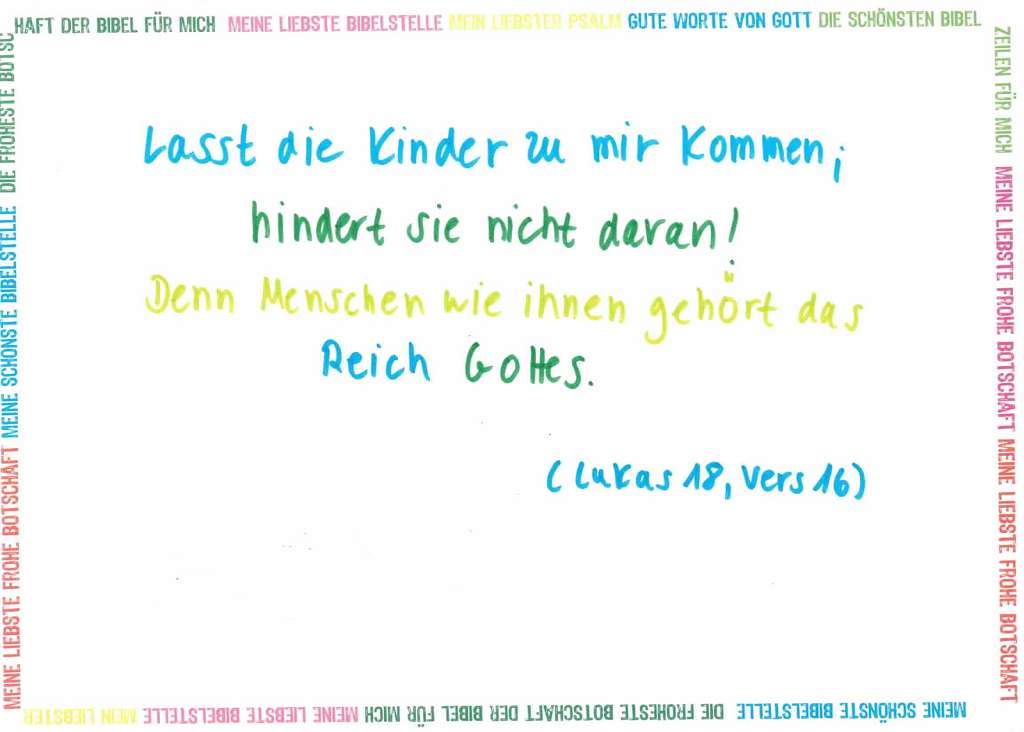 HAFT DER BIBEL FÜR MICH MEINE LIEBSTE BIBELSTELLE MEIN LIEBSTER PSALM GUTE WORTE VON GOTT DIE SCHÖNSTEN BIBEL
ZEILEN FÜR MICH MEINE LIEBSTE FROHE BOTSCHAFT MEINE LIEBSTE FROHE BOTSCHAFT
Lasst die Kinder zu mir kommen;
hindert sie nicht daran!
Denn Menschen wie ihnen gehört das
Reich Gottes.
(Lukas 18, Vers 16)
MEINE SCHÖNSTE BIBELSTELLE DIE FROHESTE BOTSCHAFT DER BIBEL FÜR MICH MEINE LIEBSTE BIBELSTELLE MEIN LIEBSTER
MEINE LIEBSTE FROHE BOTSCHAFT MEINE SCHÖNSTE BIBELSTELLE DIE FROHESTE BOTSC